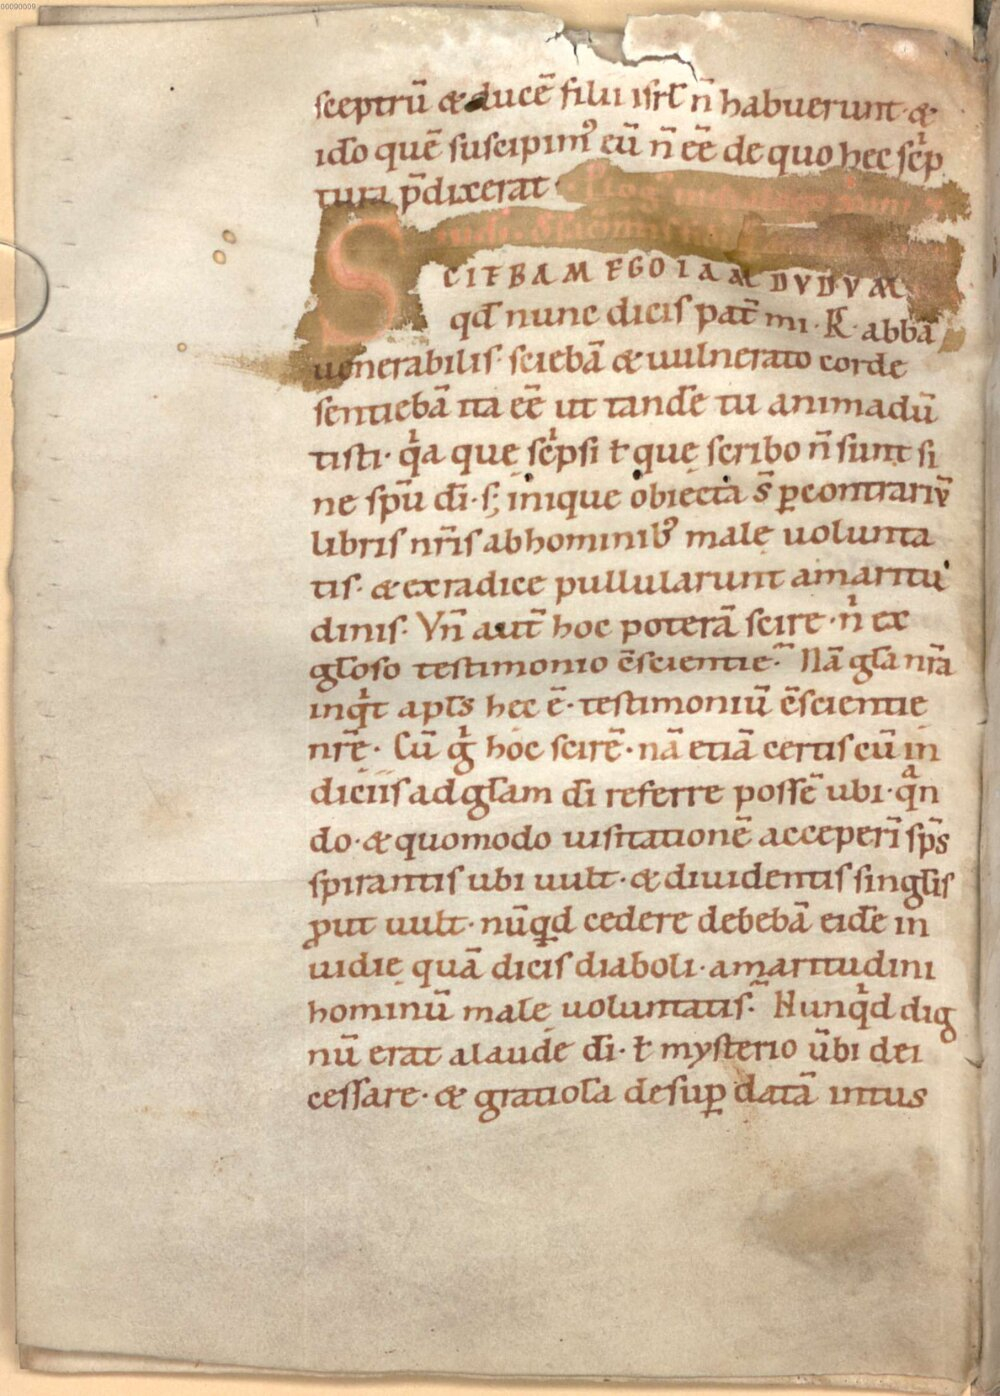 00090009
sceptrū & ducē filii isrł n̄ habuerunt · &
id̄o quē suscipim᷒ eū n̄ eē de quo hec sc̍p
tura p̄dixerat ·
SCIEBAM EGO IAM DVDVM
qd̄ nunc dicis pat̄ mi · K̄ · abba
uenerabilis · sciebā & uulnerato corde
sentiebā ita eē ut tand̄e tu animadū
tisti · q̍a que sc̍psi ł que scribo n̄ sunt si
ne sp̄u dī · s; inique obiecta s̄ ꝑ contrariū
libris nr̄is ab hominib᷒ male uolunta
tis · & ex radice pullularunt amaritu
dinis · Vn̄ aut̄ hoc poterā scire · n̍ ex
głoso testimonio ↄ̄scientie · Nā gła nr̄a
inq̍t apłs hec ē · testimoniū ↄ̄scientie
nr̄e · Cū g̍ hoc scirē · nā etiā certis cū in
diciis ad głam dī referre possē ubi · qᵃn
do · & quomodo uisitationē acceperī sp̄s
spirantis ubi uult · & diuidentis singłis
ꝓut uult · nūqd cedere debebā eid̄e in
uidie quā dicis diaboli · amaritudini
hominū male uoluntatis · Nunq̍d dig
nū erat a laude dī · ł mysterio ūbi dei
cessare · & gratiosa desuꝑ datā intus